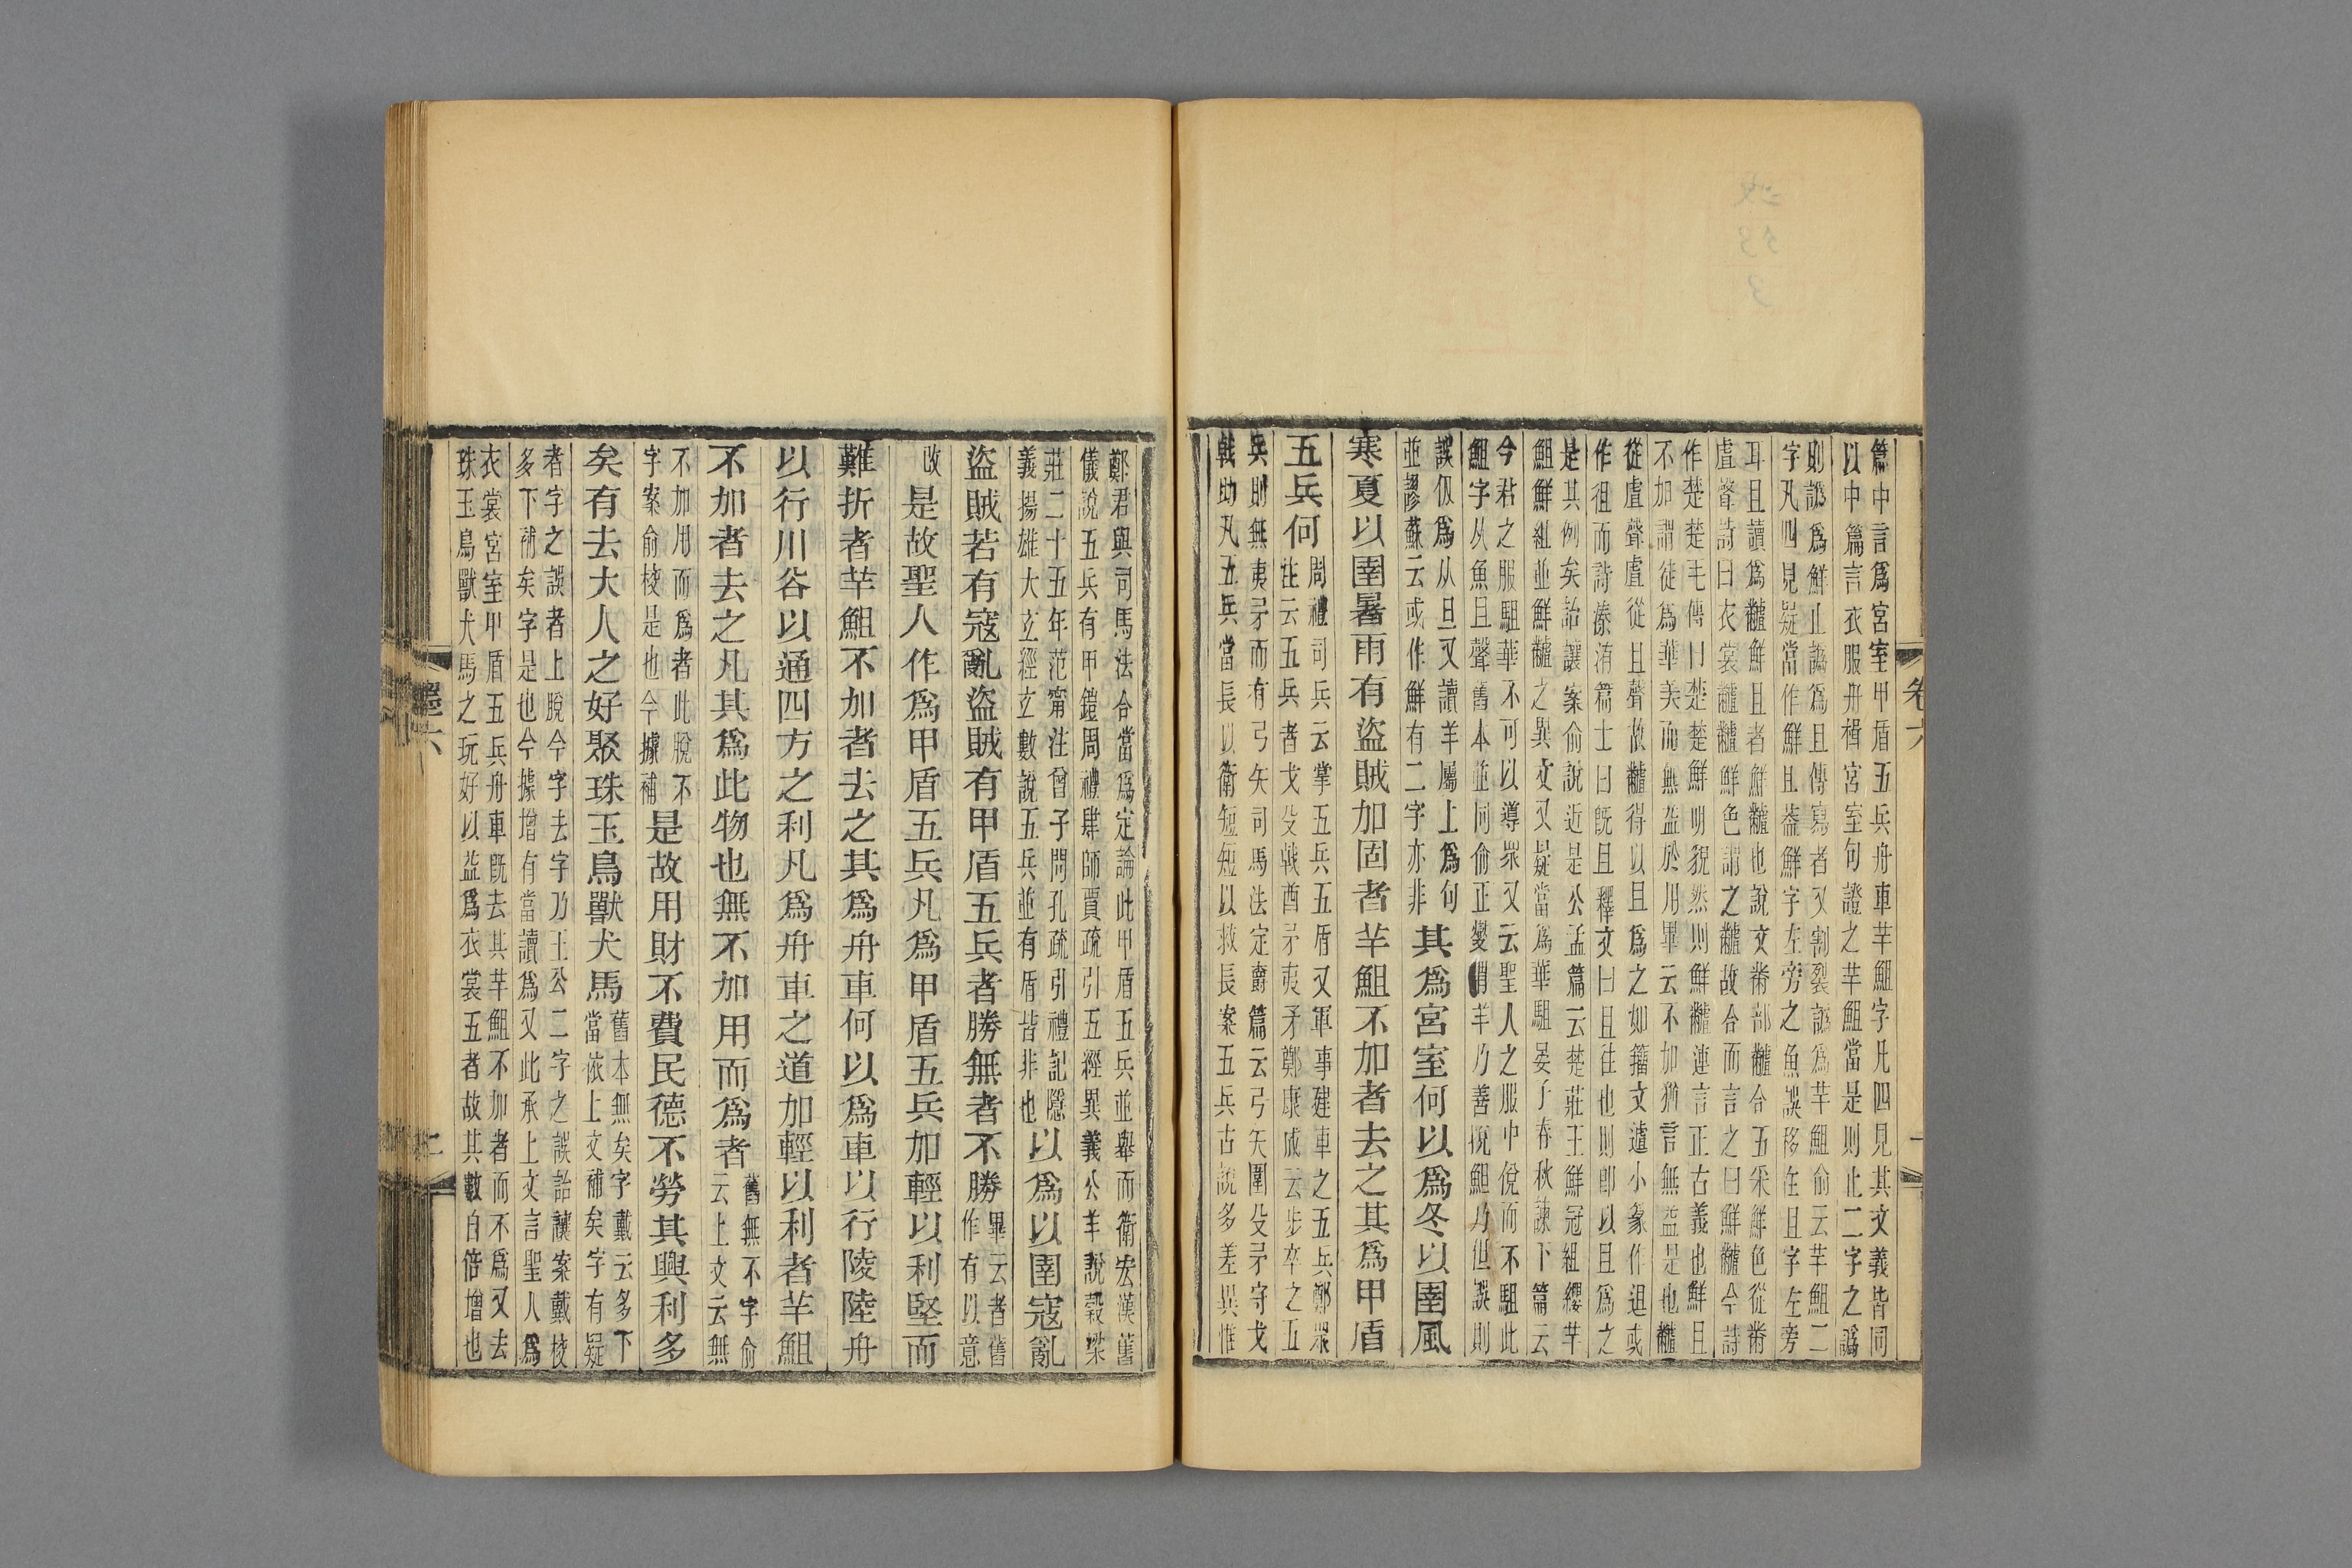 篇中言爲宮室甲盾五兵舟車芊䱉字凡四見其文義皆同
以中篇言衣服舟楫宮室句證之芊䱉當是則止二字之譌
則譌爲鮮止譌爲且傳寫者又割裂譌爲芊䱉俞云芊䱉二
字凡四見疑當作鮮且葢鮮字左旁之魚誤移在且字左旁
耳且讀爲𪓐鮮且者鮮𪓐也說文黹部𪓐合五采鮮色從黹
虘聲詩曰衣裳𪓐𪓐鮮色謂之𪓐故合而言之曰鮮𪓐今詩
作楚楚毛傳曰楚楚鮮明貌然則鮮𪓐連言正古義也鮮且
不加謂徒爲華美而無益於用畢云不加猶言無益是也𪓐
從虘聲虘從且聲故𪓐得以且爲之如籒文小篆作迌或
作徂而詩溱洧篇士曰既且釋文曰且往也則卽以且爲之
是其例矣詒讓案俞說近是公孟篇云楚莊王鮮冠組纓芊
䱉鮮組並鮮𪓐之異文又疑當爲華駔晏子春秋諫下篇云
今君之服駔華不可以導眾又云聖人之服中侻而不駔此
䱉字从魚且聲舊本並同俞正燮謂羊乃善挩䱉乃但誤則
誤仮爲从旦又讀羊屬上爲句
並謬蘇云或作鮮有二字亦非
其爲宮室何以爲冬以圉風
寒夏以圉暑雨有盜賊加固者芊䱉不加者去之其爲甲盾
五兵何
周禮司兵云掌五兵五盾又軍事建車之五兵鄭眾
注云五兵者戈殳戟酋矛夷矛鄭康成云步卒之五
兵則無夷矛而有弓矢司馬法定爵篇云弓矢圍殳矛守戈
戟助凡五兵當長以衞短短以救長案五兵古說多差異惟
卷六
一
鄭君與司馬法合當爲定論此甲盾五兵並舉而衞宏漢舊
儀說五兵有甲鎧周禮肆師賈疏引五經異義公羊說穀梁
莊二十五年范甯注曾子問孔疏引禮記隱
義揚雄大玄經玄數說五兵並有盾皆非也
以爲以圉寇亂
盜賊若有寇亂盜賊有甲盾五兵者勝無者不勝
畢云者舊
作有以意
改
是故聖人作爲甲盾五兵凡爲甲盾五兵加輕以利堅而
難折者芊䱉不加者去之其爲舟車何以爲車以行陵陸舟
以行川谷以通四方之利凡爲舟車之道加輕以利者芊䱉
不加者去之凡其爲此物也無不加用而爲者
舊無不字俞
云上文云無
不加用而爲者此脫不
字案俞校是也今據補
是故用財不費民德不勞其興利多
矣有去大人之好聚珠玉鳥獸犬馬
舊本無矣字戴云多下
當依上文補矣字有疑
者字之誤者上脫今字去字乃王公二字之誤詒讓案戴校
多下補矣字是也今據增有當讀爲又此承上文言聖人爲
衣裳宮室甲盾五兵舟車旣去其芊䱉不加者而不爲又去
珠玉鳥獸犬馬之玩好以益爲衣裳五者故其數自倍增也
墨六
二